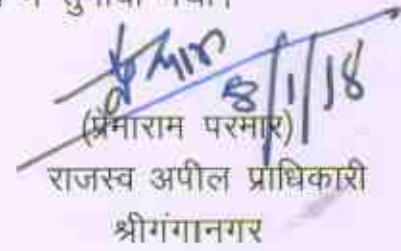 में सुनाया गया।
8/1/18
(प्रेमाराम परमार)
राजस्व अपील प्राधिकारी
श्रीगंगानगर